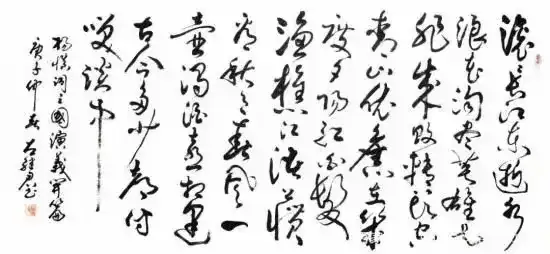 滚滚长江东逝水
浪花淘尽英雄是
非成败转头空
青山依旧在几
度夕阳红白髮
渔樵江渚上惯
看秋月春风一
壶浊酒喜相逢
古今多少事都付
笑谈中
杨慎词三國演義开篇
庚子仲春